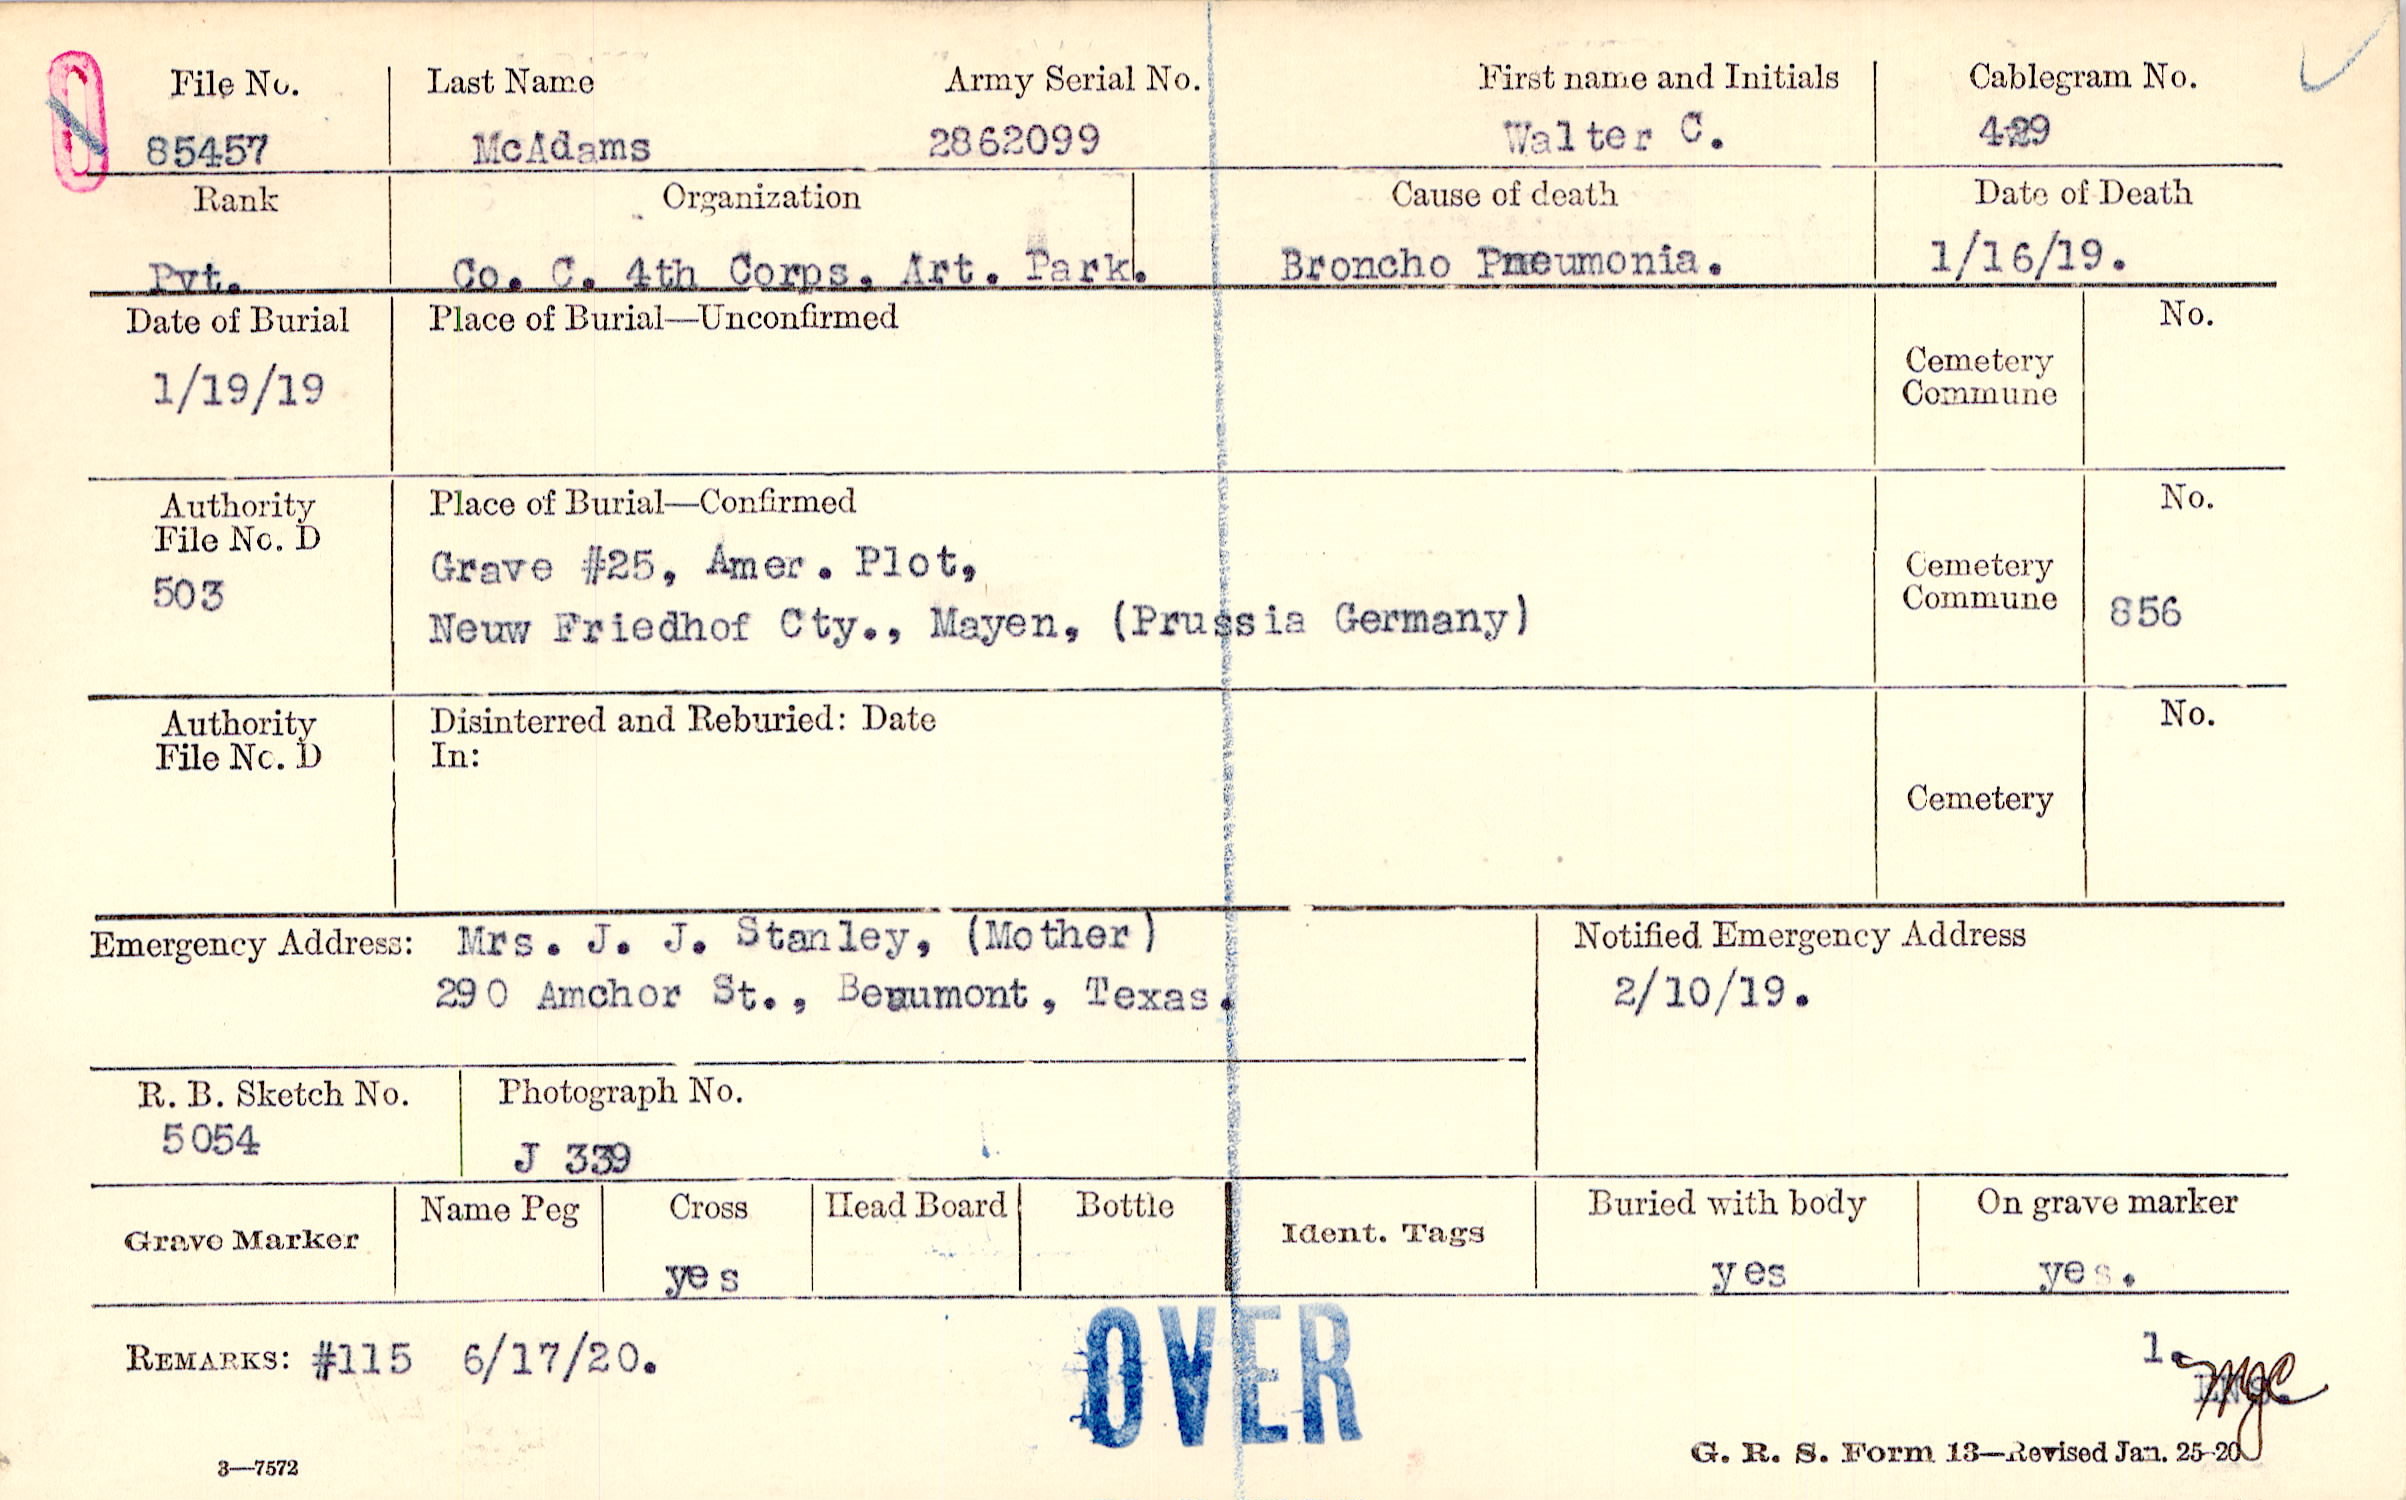 File No. Last Name Army Serial No. First name and Initials Cablegram No.
85457 McAdams 2862099 Walter C. 429
Rank Organization Cause of death Date of Death
Pvt. Co. C. 4th Corps. Art. Park. Broncho Pneumonia. 1/16/19.
Date of Burial Place of Burial—Unconfirmed No.
1/19/19 Cemetery
Commune
Authority Place of Burial—Confirmed No.
File No. D
503 Grave #25, Amer. Plot, Cemetery
Neuw Friedhof Cty., Mayen, (Prussia Germany) Commune 856
Authority Disinterred and Reburied: Date No.
File No. D In:
Cemetery
Emergency Address: Mrs. J. J. Stanley, (Mother) Notified Emergency Address
290 Amchor St., Beaumont, Texas. 2/10/19.
R. B. Sketch No. Photograph No.
5054 J 339
Grave Marker Name Peg Cross Head Board Bottle Ident. Tags Buried with body On grave marker
yes yes yes.
REMARKS: #115 6/17/20. OVER 1.
3—7572 G. R. S. Form 13—Revised Jan. 25-20